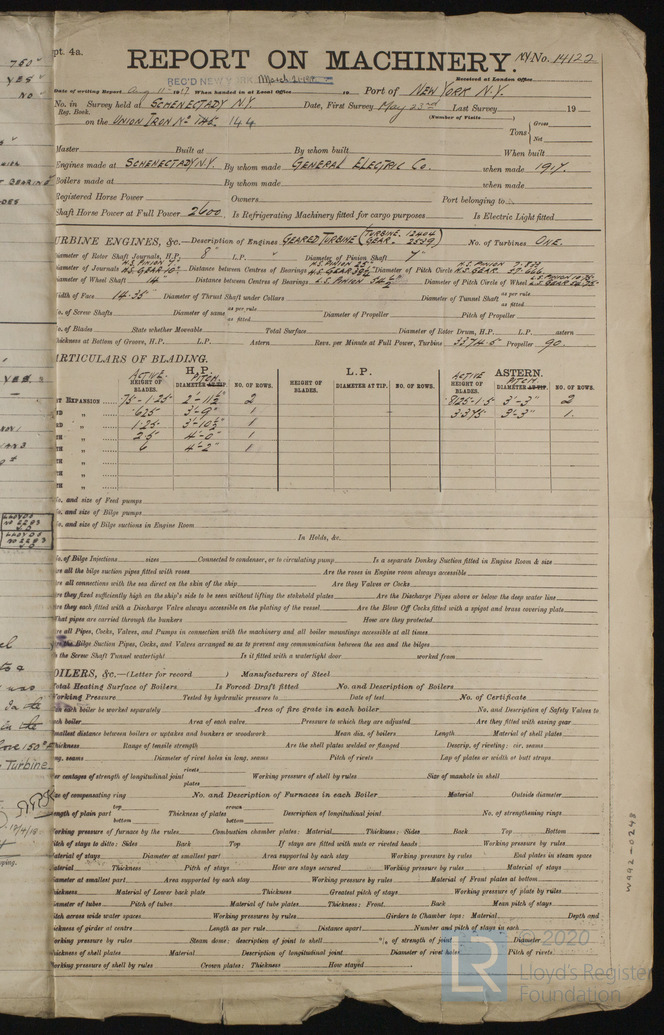 pt. 4a.
REPORT ON MACHINERY. NY No. 14122
REC'D NEW YORK March
Received at London Office
Date of writing Report Aug 11th 1917 When handed in at Local Office 10 Port of NEW YORK N.Y.
No. in Survey held at SCHENECTADY N.Y. Date, First Survey May 23rd Last Survey 19
Reg. Book. (Number of Visits
on the UNION IRON No 145, 144 Tons Gross
Net
Master Built at By whom built When built
Engines made at SCHENECTADY N.Y. By whom made GENERAL ELECTRIC Co. when made 1917.
Boilers made at By whom made when made
Registered Horse Power Owners Port belonging to
Shaft Horse Power at Full Power 2600. Is Refrigerating Machinery fitted for cargo purposes Is Electric Light fitted
TURBINE ENGINES, &c.—Description of Engines GEARED TURBINE (TURBINE. 12404 GEAR. 2549) No. of Turbines ONE.
Diameter of Rotor Shaft Journals, H.P. 8" L.P. " Diameter of Pinion Shaft 7"
H.S. PINION 7" H.S. PINION 25" H.S. PINION
Diameter of Journals H.S. GEAR 10" Distance between Centres of Bearings H.S. GEAR Diameter of Pitch Circle H.S. GEAR
Diameter of Wheel Shaft 14" Distance between Centres of Bearings L.S. PINION Diameter of Pitch Circle of Wheel
Width of Face 14.35" Diameter of Thrust Shaft under Collars Diameter of Tunnel Shaft as per rule
as fitted
No. of Screw Shafts Diameter of same as per rule Diameter of Propeller Pitch of Propeller
as fitted
No. of Blades State whether Moveable Total Surface Diameter of Rotor Drum, H.P. L.P. astern
Thickness at Bottom of Groove, H.P. L.P. Astern Revs. per Minute at Full Power, Turbine 3374.5 Propeller 90.
PARTICULARS OF BLADING.
H.P. L.P. ASTERN.
ACTIVE HEIGHT OF BLADES. PITCH DIAMETER AT TIP. NO. OF ROWS. HEIGHT OF BLADES. DIAMETER AT TIP. NO. OF ROWS. ACTIVE HEIGHT OF BLADES. PITCH DIAMETER AT TIP. NO. OF ROWS.
ST EXPANSION .75-1.25 2'-11½" 2 .8125-1.5 3'-3" 2
ND " .625 3'-9" 1 3.375 3'-3" 1
RD " 1.25 3'-10½" 1
TH " 2.5 4'-0" 1
TH " 6 4'-2" 1
TH "
TH "
TH "
No. and size of Feed pumps
No. and size of Bilge pumps
No. and size of Bilge suctions in Engine Room
In Holds, &c.
No. of Bilge Injections sizes Connected to condenser, or to circulating pump Is a separate Donkey Suction fitted in Engine Room & size
Are all the bilge suction pipes fitted with roses Are the roses in Engine room always accessible
Are all connections with the sea direct on the skin of the ship Are they Valves or Cocks
Are they fixed sufficiently high on the ship's side to be seen without lifting the stokehold plates Are the Discharge Pipes above or below the deep water line
Are they each fitted with a Discharge Valve always accessible on the plating of the vessel Are the Blow Off Cocks fitted with a spigot and brass covering plate
What pipes are carried through the bunkers How are they protected
Are all Pipes, Cocks, Valves, and Pumps in connection with the machinery and all boiler mountings accessible at all times
the Bilge Suction Pipes, Cocks, and Valves arranged so as to prevent any communication between the sea and the bilges
Is the Screw Shaft Tunnel watertight Is it fitted with a watertight door worked from
BOILERS, &c.—(Letter for record ) Manufacturers of Steel
Total Heating Surface of Boilers Is Forced Draft fitted No. and Description of Boilers
Working Pressure Tested by hydraulic pressure to Date of test No. of Certificate
Can each boiler be worked separately Area of fire grate in each boiler No. and Description of Safety Valves to
each boiler Area of each valve Pressure to which they are adjusted Are they fitted with easing gear
Smallest distance between boilers or uptakes and bunkers or woodwork Mean dia. of boilers Length Material of shell plates
Thickness Range of tensile strength Are the shell plates welded or flanged Descrip. of riveting: cir. seams
long. seams Diameter of rivet holes in long. seams Pitch of rivets Lap of plates or width of butt straps
Per centages of strength of longitudinal joint rivets
plates Working pressure of shell by rules Size of manhole in shell
Size of compensating ring No. and Description of Furnaces in each Boiler Material Outside diameter
Length of plain part top
bottom Thickness of plates crown
bottom Description of longitudinal joint No. of strengthening rings
Working pressure of furnace by the rules Combustion chamber plates: Material Thickness: Sides Back Top Bottom
Pitch of stays to ditto: Sides Back Top If stays are fitted with nuts or riveted heads Working pressure by rules
Material of stays Diameter at smallest part Area supported by each stay Working pressure by rules End plates in steam space
Material Thickness Pitch of stays How are stays secured Working pressure by rules Material of stays
Diameter at smallest part Area supported by each stay Working pressure by rules Material of Front plates at bottom
Thickness Material of Lower back plate Thickness Greatest pitch of stays Working pressure of plate by rules
Diameter of tubes Pitch of tubes Material of tube plates Thickness: Front Back Mean pitch of stays
Pitch across wide water spaces Working pressures by rules Girders to Chamber tops: Material Depth and
thickness of girder at centre Length as per rule Distance apart Number and pitch of stays in each
Working pressure by rules Steam dome: description of joint to shell % of strength of joint Diameter
Thickness of shell plates Material Description of longitudinal joint Diameter of rivet holes Pitch of rivets
Working pressure of shell by rules Crown plates: Thickness How stayed
W992-0248
© 2020
LR Lloyd's Register
Foundation
750"
YES
NO
Turbine